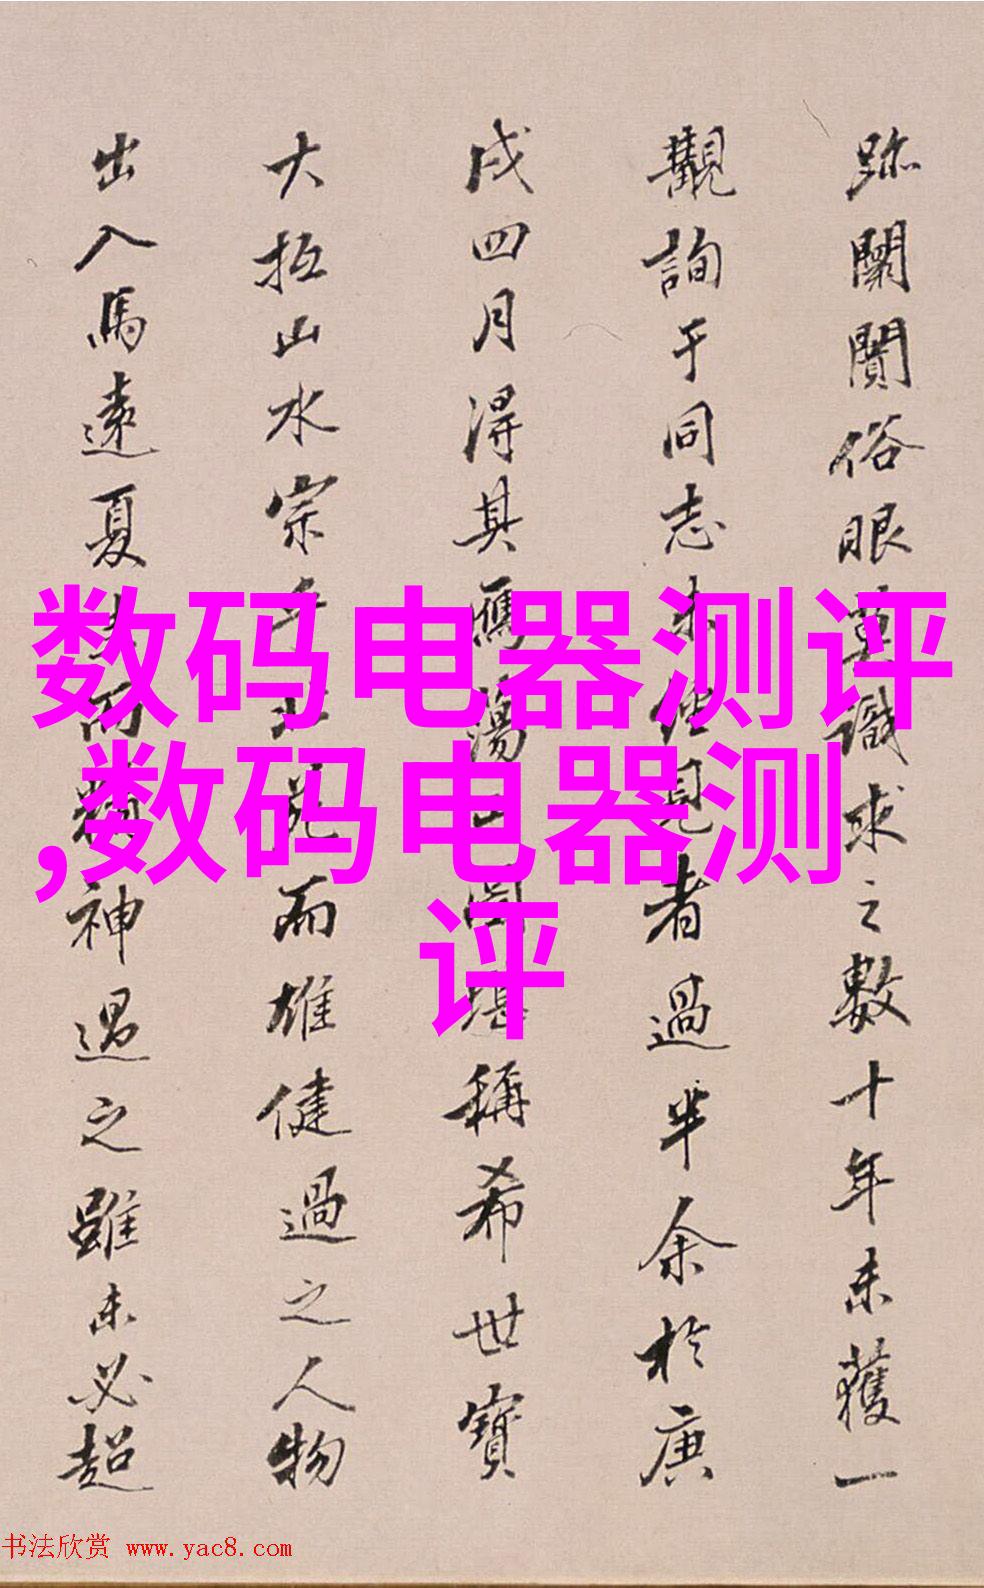 跡闌闠俗眼莫識求之數十年未獲一
觀詢于同志未但見者過半余於庚
戌四月淂其鴈蕩圖堪稱希世寶
大抵山水宗而雄健過之人物
出入馬遠夏而神過之雖未必超
数码电器测评
,数码电器测
评
书法欣赏 www.yac8.com